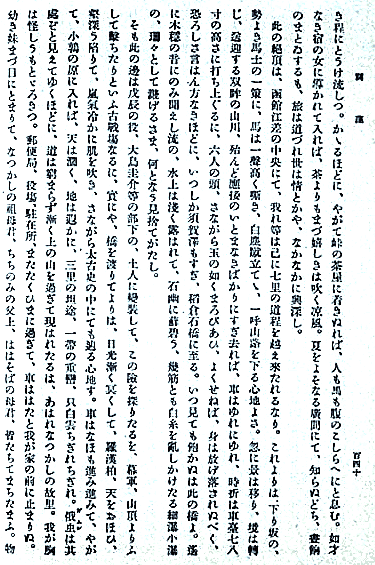 き程にとうけ流しつ。かくるほどに、やがて峠の茶屋に着きぬれば、人も馬も腹のこしらへにと息む。如才
なき宿の女に導かれて入れば、茶よりもまづ嬉しきは吹く凉風。夏をよそなる廣間にて、知らぬどち、晝餉
のまとゐするも、旅は道づれ世は情とかや、なかなかに興深し。
此の絶頂は、函館江差の中央にて、我れ等は已に七里の道程を越え來たれるなり。これよりは下り坂の、
勢よき馬士の一策に、馬は一聲高く嘶き、白塵蹴立てゝ、一呼山路を下る心地よさ。忽に景は移り、境は轉
じ、送迎する双眸の山川、殆んど應接のいとまなきばかりにすぎ去れば、車はゆれにゆれ、時折は車臺七八
寸の高さに打ち上ぐるに、六人の頭、さながら玉の如くまろびあひ、よくせねば、身は放げ落されぬべく、
恐ろしさ言はん方なきほどに、いつしか須賀澤もすぎ、稻倉石橋に至る。いつ見ても飽かぬは此の橋よ。遙
に水穩の音にのみ聞えし流の、水上は淺く露はれて、石幽に蘚碧う、幾筋とも白糸を亂しかけたる細瀑小瀑
の、珊々として濺げるさま、何となう見捨てがたし。
そも此の邊は戊辰の役、大鳥圭介等の部下の、土人に變裝して、この險を探りたるを、幕軍、山頂よりふ
して擊ちたりといふ古戰場なるに、實にや、橋を渡りてよりは、日光漸く冥くして、羅漢柏、天をおほひ、
壑深う陷りて、嵐氣冷かに肌を吹き、さながら太古史の中にても辿る心地す。車はなほも進み進みて、やが
て、小鶉の原に入れば、天は濶く、地は遐かに、三里の坦途、一帶の重巒、只白雲ちぎれちぎれ。俄虫は其
處ぞと見えてゆくほどに、道は窮まらず漸く上の山を過ぎて現はれたるは、あはれなつかしの故里。我が胸
は怪しうもとゞろきつ。郵便局、役場、駐在所、またたくひまに過ぎて、車ははたと我が家の前に止まりぬ。
幼き妹まづ目にとまりて、なつかしの祖母君、ちちのみの父上、ははそばの母君、皆たちてまちたまふ。物
百四十